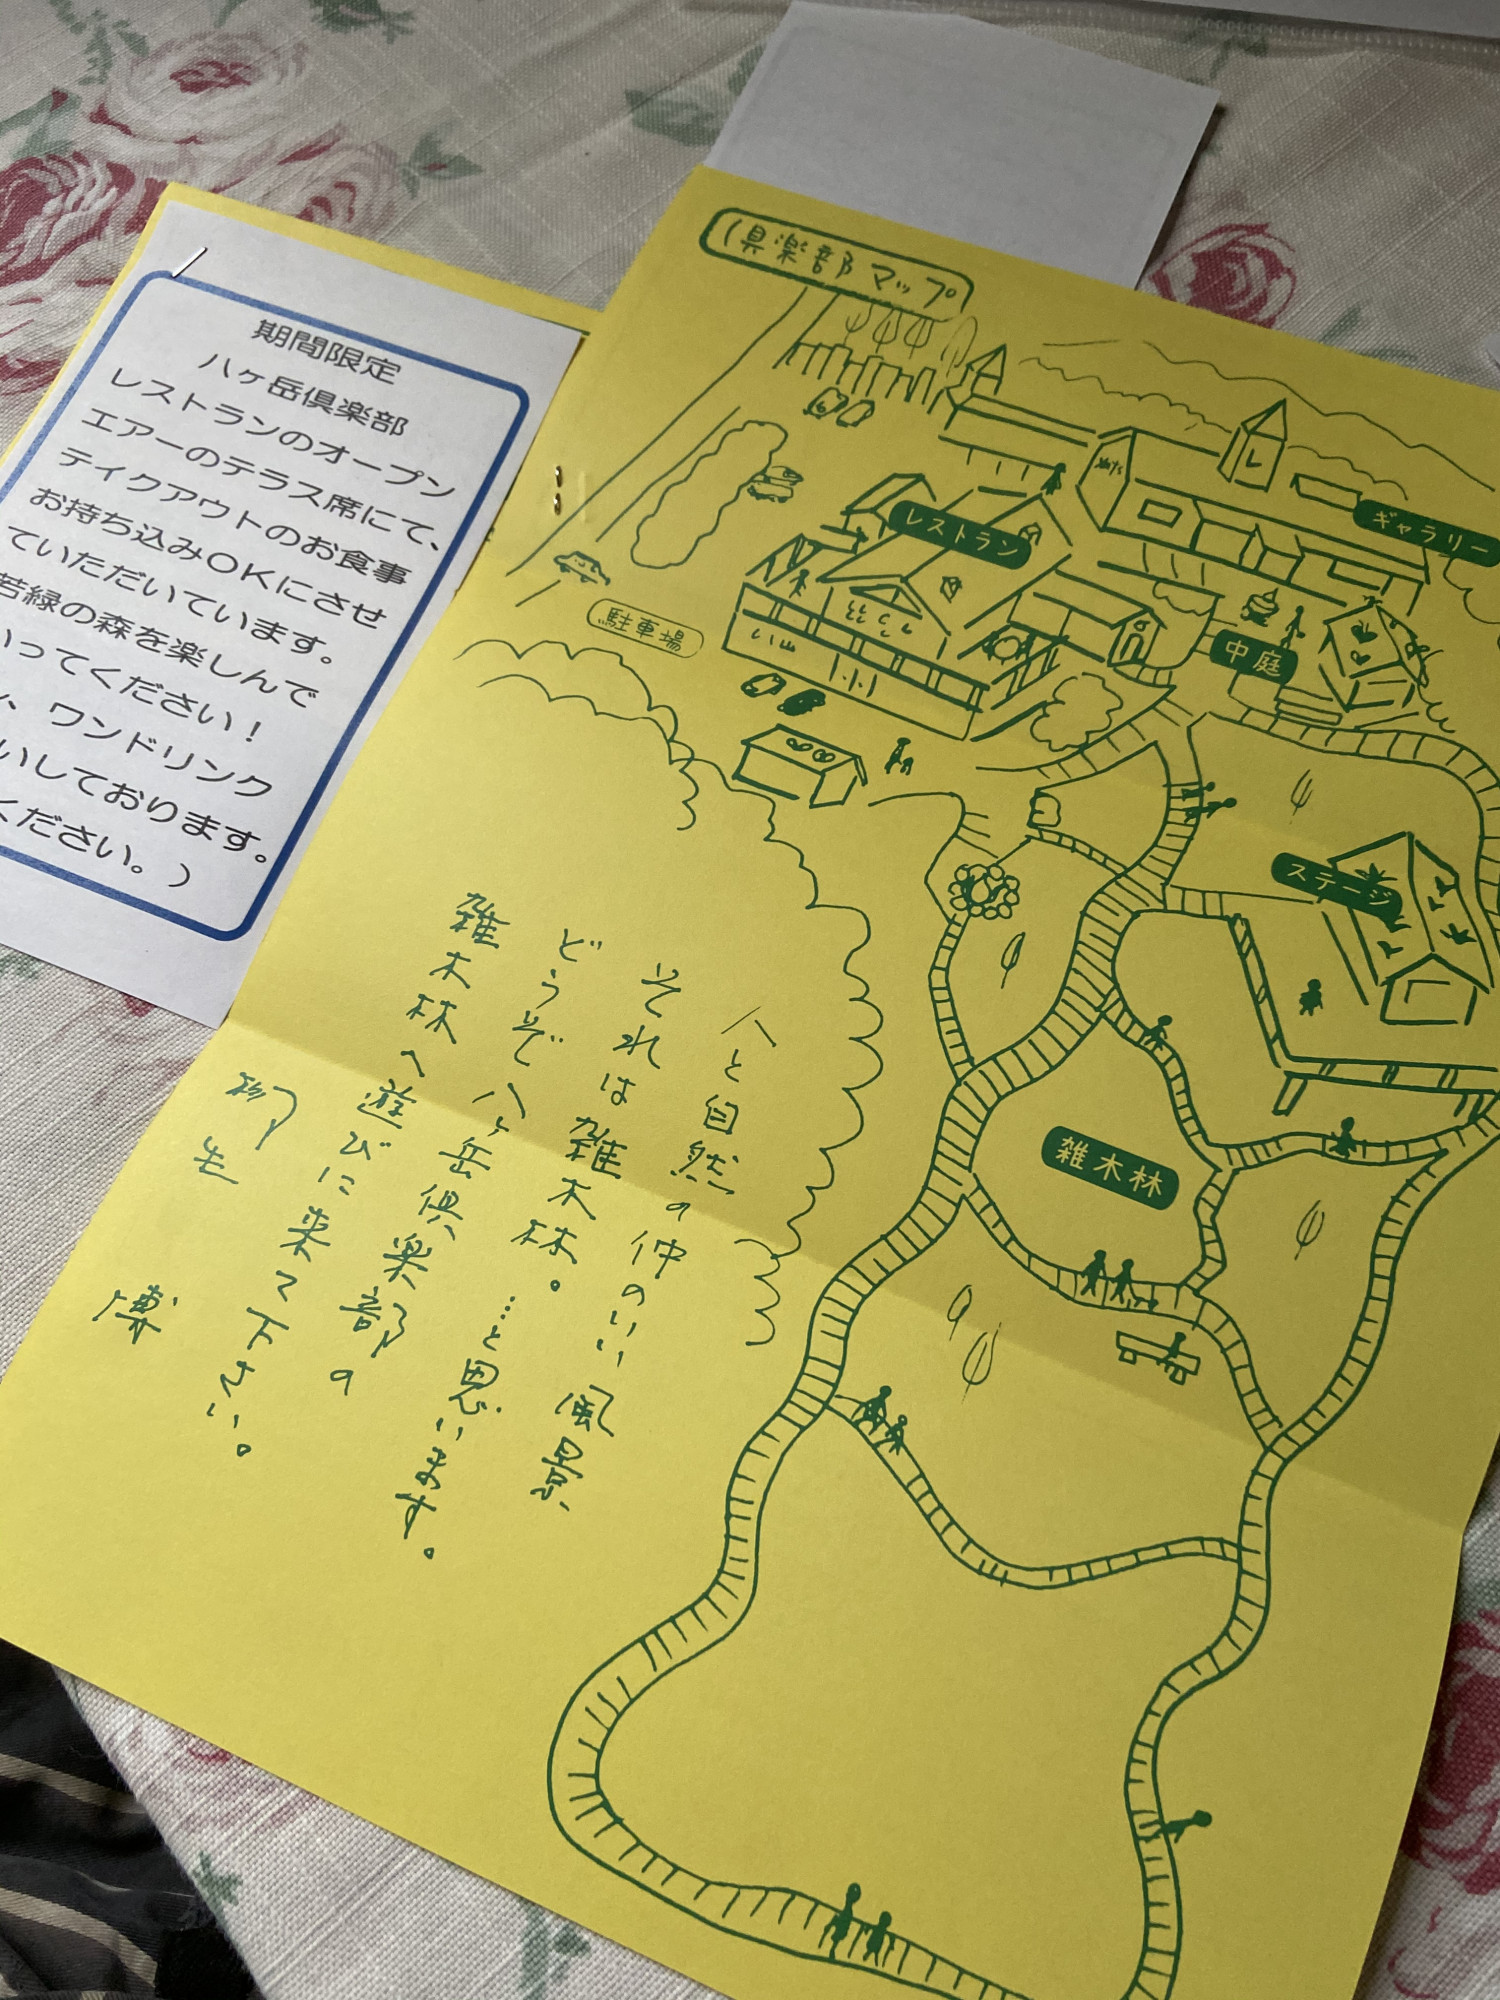 期間限定
八ヶ岳倶楽部
レストランのオープン
エアーのテラス席にて、
テイクアウトのお食事
お持ち込みOKにさせ
ていただいています。
若緑の森を楽しんで
いってください！
、ワンドリンク
いしております。
ください。）
倶楽部マップ
レストラン
ギャラリー
駐車場
中庭
ステージ
雑木林
人と自然の仲のいい風景、
それは雑木林。…と思います。
どうぞ八ヶ岳倶楽部の
雑木林へ遊びに来て下さい。
柳生 博